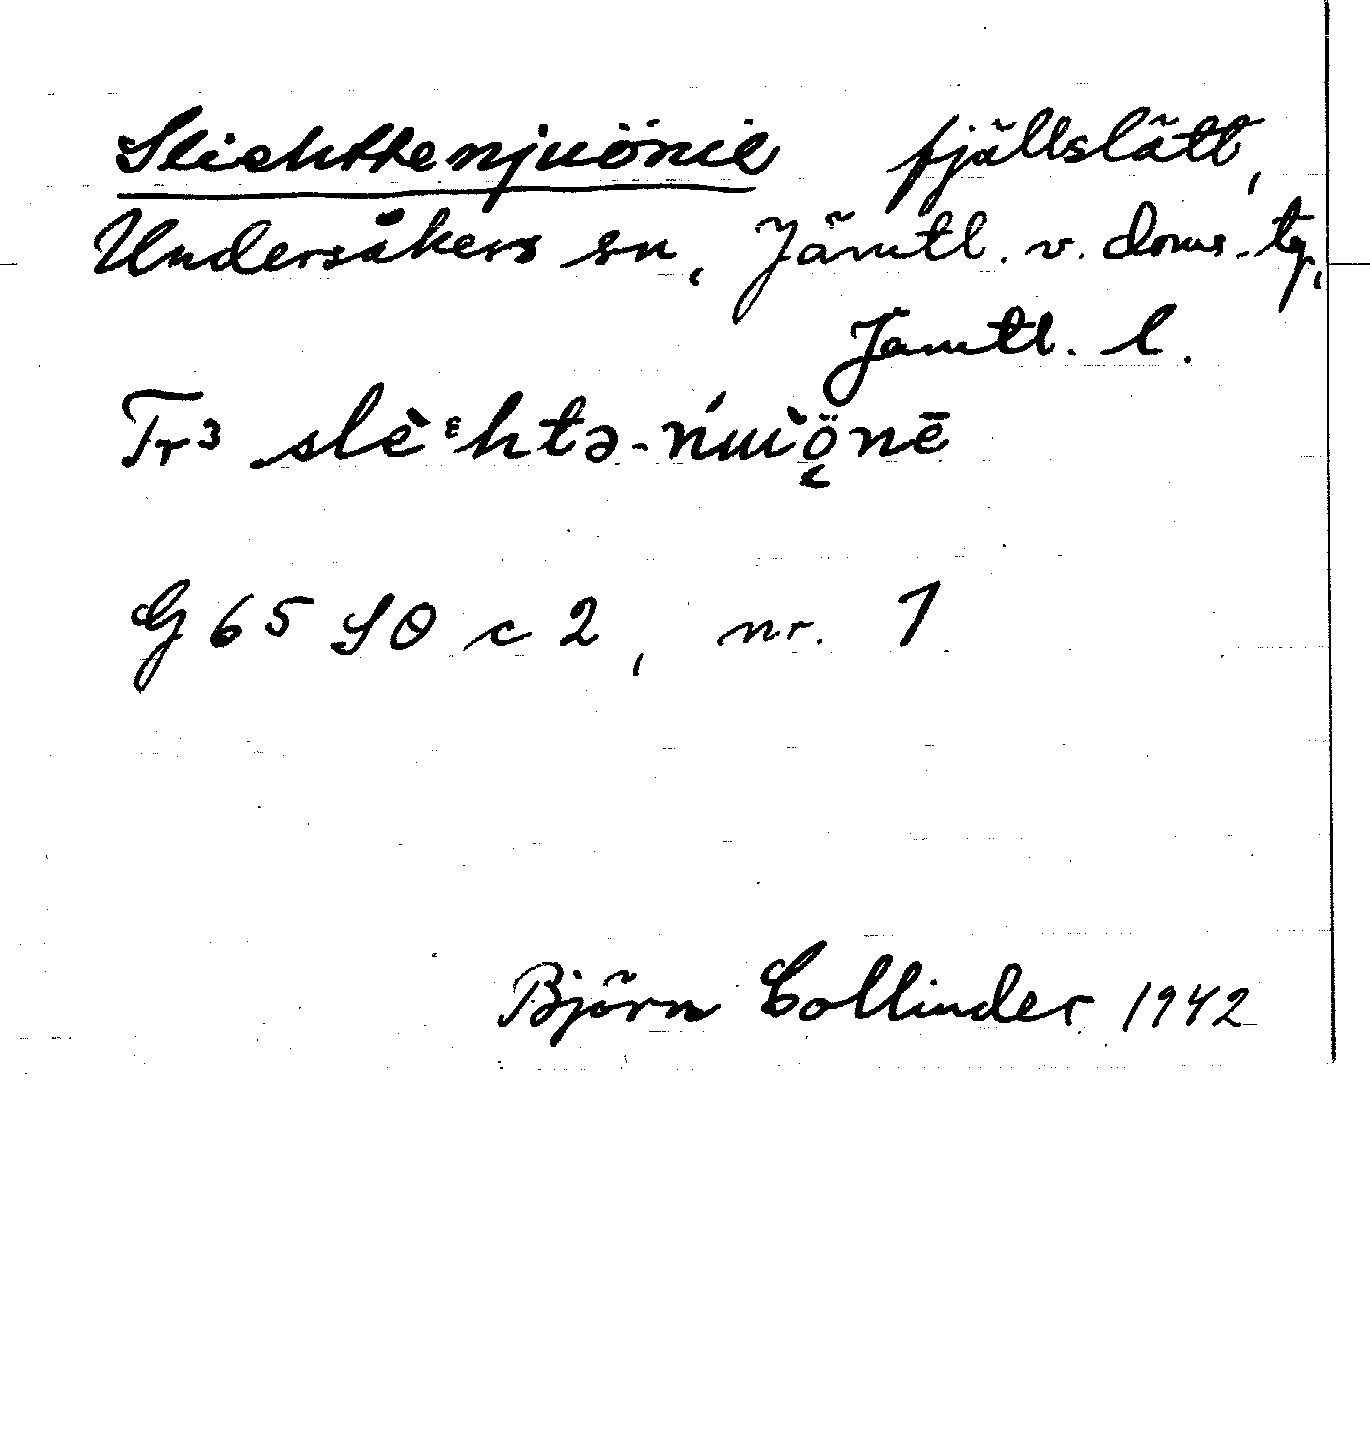 Sliehttenjuönie fjällslätt,
Undersåkers sn, Jämtl. v. doms. tg,
Jämtl. l.
Tr³ slèᵋhtə-ńuìö̜nē
G 65 SO c 2, nr. 1
Björn Collinder 1942